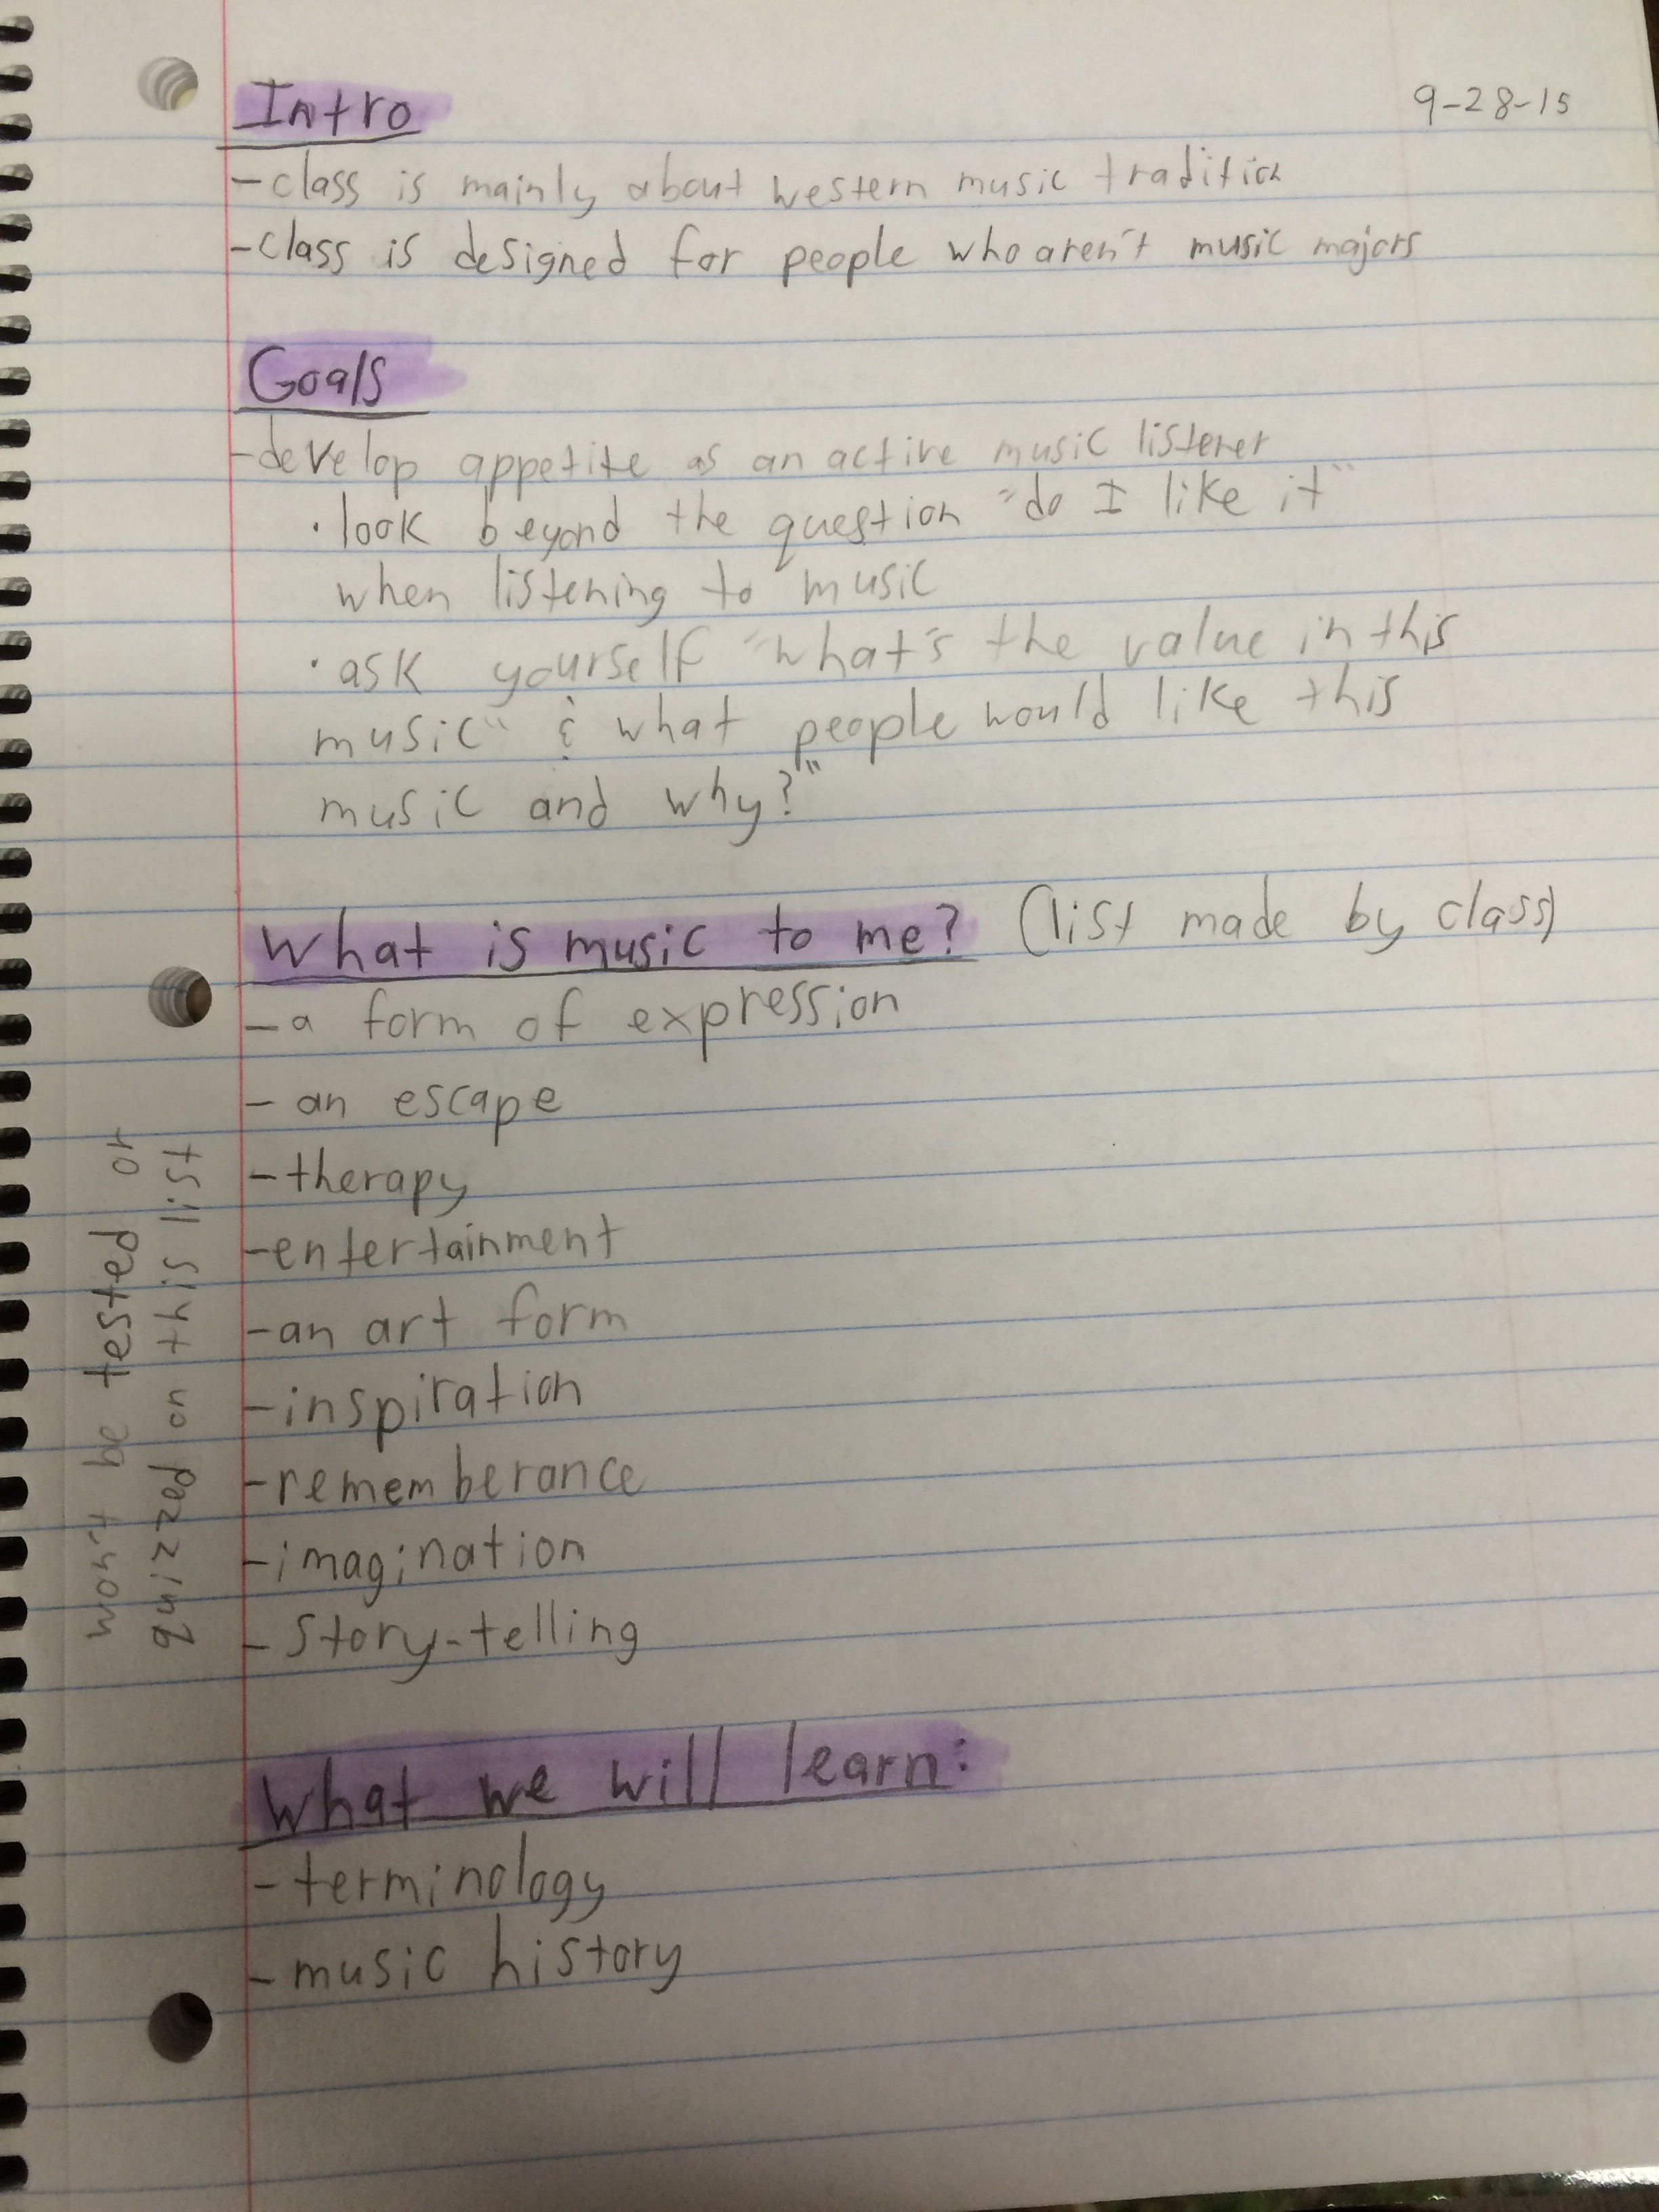 9-28-15
Intro
-class is mainly about western music tradition
-class is designed for people who aren't music majors
Goals
-develop appetite as an active music listener
·look beyond the question "do I like it"
when listening to music
·ask yourself "what's the value in this
music" & what people would like this
music and why?"
What is music to me? (list made by class)
-a form of expression
-an escape
-therapy
-entertainment
-an art form
-inspiration
-rememberance
-imagination
-story-telling
won't be tested or
quizzed on this list
What we will learn:
-terminology
-music history